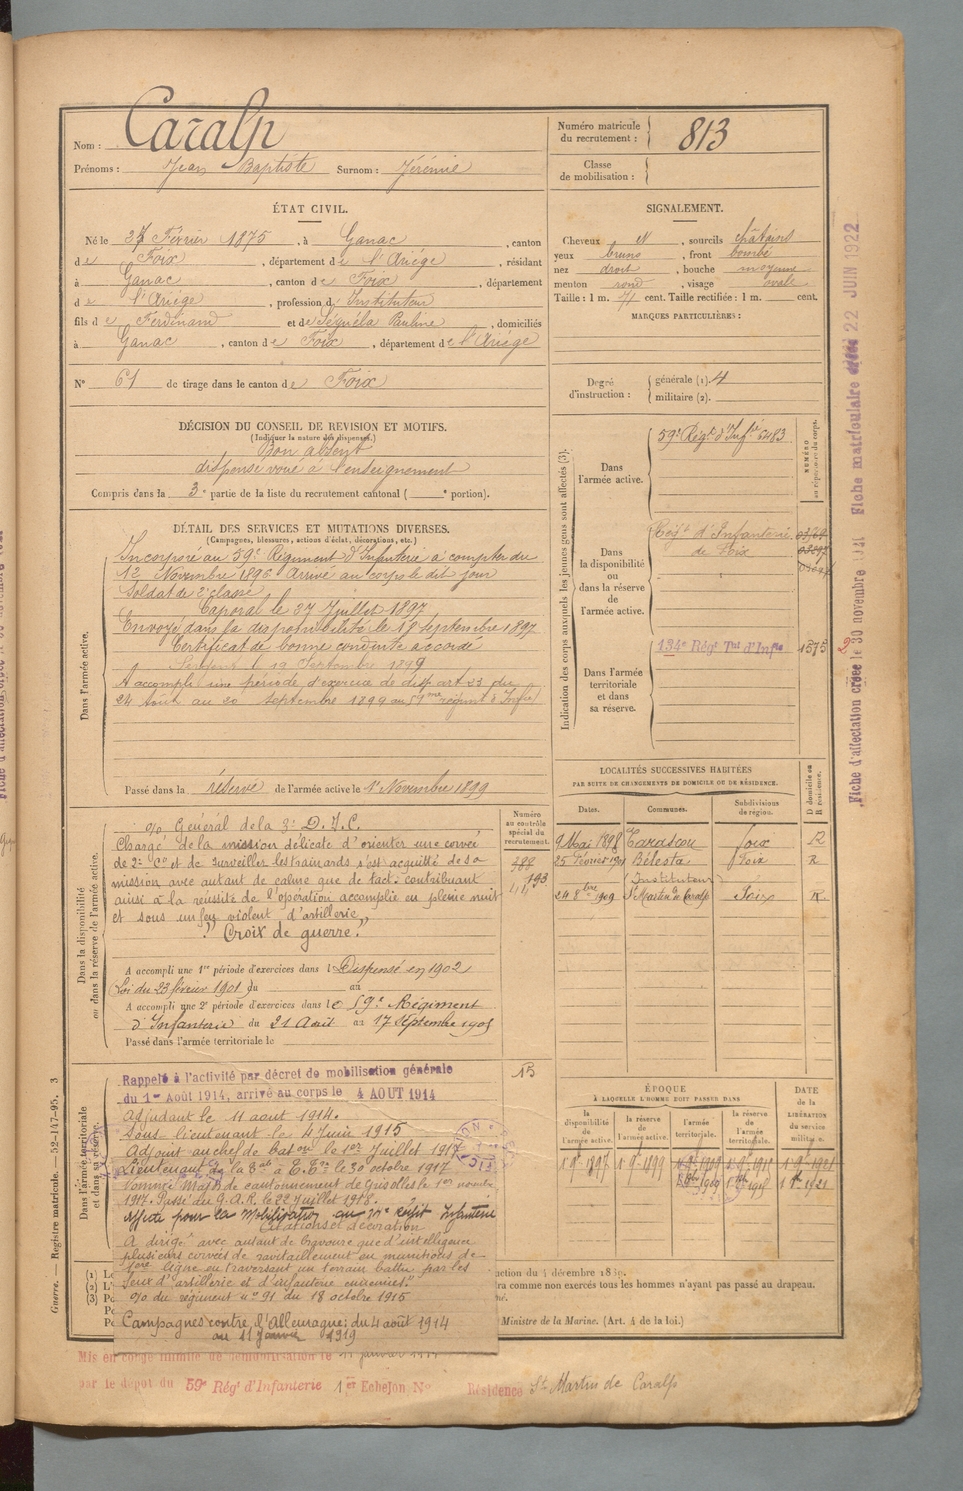 Nom : Caralp
Prénoms : Jean Baptiste Surnom : Jérémie
Numéro matricule du recrutement : 813
Classe de mobilisation :
ÉTAT CIVIL.
Né le Février 1875, à Ganac, canton
de Foix, département de l'Ariège, résidant
à Ganac, canton de Foix, département
de l'Ariège, profession de Instituteur
fils de Ferdinand et de Séguéla Pauline, domiciliés
à Ganac, canton de Foix, département de l'Ariège
N° 61 de tirage dans le canton de Foix
SIGNALEMENT.
Cheveux et, sourcils châtains
yeux bruns, front bombé
nez droit, bouche moyenne
menton rond, visage ovale
Taille : 1 m. 71 cent. Taille rectifiée : 1 m. cent.
MARQUES PARTICULIÈRES :
Degré d'instruction : générale (1). 4
militaire (2).
DÉCISION DU CONSEIL DE REVISION ET MOTIFS.
(Indiquer la nature des dispenses.)
Bon absent
dispensé voué à l'enseignement
Compris dans la 3e partie de la liste du recrutement cantonal ( e portion).
DÉTAIL DES SERVICES ET MUTATIONS DIVERSES.
(Campagnes, blessures, actions d'éclat, décorations, etc.)
Dans l'armée active.
Incorporé au 59e Régiment d'Infanterie à compter du
12 Novembre 1896 Arrivé au corps le dit jour
Soldat de 2e classe
Caporal le 27 Juillet 1897
Envoyé dans la disponibilité le 18 Septembre 1897
Certificat de bonne conduite accordé
Sergent le 19 Septembre 1899
A accompli une période d'exercice de disp. art 23 du
24 Août au 20 septembre 1899 au 59me régiment d'Infie
Passé dans la réserve de l'armée active le 1er Novembre 1899
Indication des corps auxquels les jeunes gens sont affectés (3).
NUMÉRO au répertoire du corps.
Dans l'armée active.
59e Régt d'Infie 5483
Dans la disponibilité ou dans la réserve de l'armée active.
Régt d'Infanterie
de Foix
Dans l'armée territoriale et dans sa réserve.
134e Régt Tal d'Infie 1575
LOCALITÉS SUCCESSIVES HABITÉES
PAR SUITE DE CHANGEMENTS DE DOMICILE OU DE RÉSIDENCE.
Dates. Communes. Subdivisions de région. D domicile ou R résidence.
9 Mai 1898 Tarascon Foix R
25 Février 1901 Bélesta Foix R
(Instituteur)
24 8bre 1909 St Martin de Caralp Foix R
Dans la disponibilité ou dans la réserve de l'armée active.
Numéro au contrôle spécial du recrutement.
388
193
o/o Général de la 3e D.I.C.
Chargé de la mission délicate d'orienter une corvée
de 2e et de surveiller les trainards s'est acquitté de sa
mission avec autant de calme que de tact. contribuant
ainsi à la réussite de l'opération accomplie en pleine nuit
et sous un feu violent d'artillerie."
"Croix de guerre."
A accompli une 1re période d'exercices dans l Dispensé en 1902
Loi du 23 février 1901 du au
A accompli une 2e période d'exercices dans le 59e Régiment
d'Infanterie du 21 Août au 17 Septembre 1905
Passé dans l'armée territoriale le
Dans l'armée territoriale et dans sa réserve.
15
Rappelé à l'activité par décret de mobilisation générale
du 1er Août 1914, arrivé au corps le 4 AOUT 1914
Adjudant le 11 aout 1914.
Sous lieutenant le 4 Juin 1915
Adjoint au chef de baton le 1er Juillet 1917
Lieutenant le 30 octobre 1917
Nommé Major de cantonnement de le 1er novembre
1917. Passé du G.A.R. le 22 Juillet 1918.
Affecté pour la Mobilisation Infanterie
Citations et décoration
A dirigé avec autant de bravoure que d'intelligence
plusieurs corvées de ravitaillement en munitions de
1ère ligne en traversant un terrain battu par les
feux d'artillerie et d'infanterie ennemies."
o/o du régiment no 91 du 18 octobre 1915
Campagnes contre l'Allemagne : du 4 août 1914
au 11 Janvier 1919
ÉPOQUE
À LAQUELLE L'HOMME DOIT PASSER DANS
la disponibilité de l'armée active. la réserve de l'armée active. l'armée territoriale. la réserve de l'armée territoriale.
DATE de la LIBÉRATION du service militaire.
(1)
(2)
(3)
ction du 4 décembre 18
ra comme non exercés tous les hommes n'ayant pas passé au drapeau.
Ministre de la Marine. (Art. 4 de la loi.)
Mis en congé illimité de démobilisation le 11 janvier
par le dépôt du 59e Régt d'Infanterie 1er Echelon No Résidence St Martin de Caralp
Guerre. — Registre matricule. — 52-147-95. 3
Fiche d'affectation créée le 30 novembre Fiche matriculaire 22 JUIN 1922